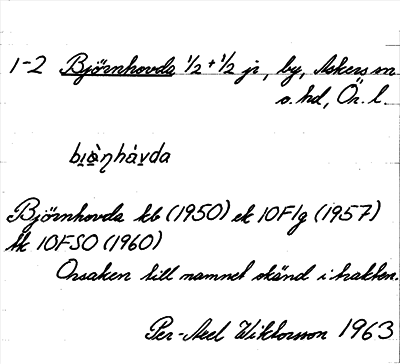 1-2 Björnhovda 1/2 + 1/2 jr, by, Askers sn
o. hd, Ör. l.
Björnhovda kb (1950) ek 10F1g (1957)
tk 10FSO (1960)
Orsaken till namnet okänd i trakten.
Per-Axel Wiktorsson 1963